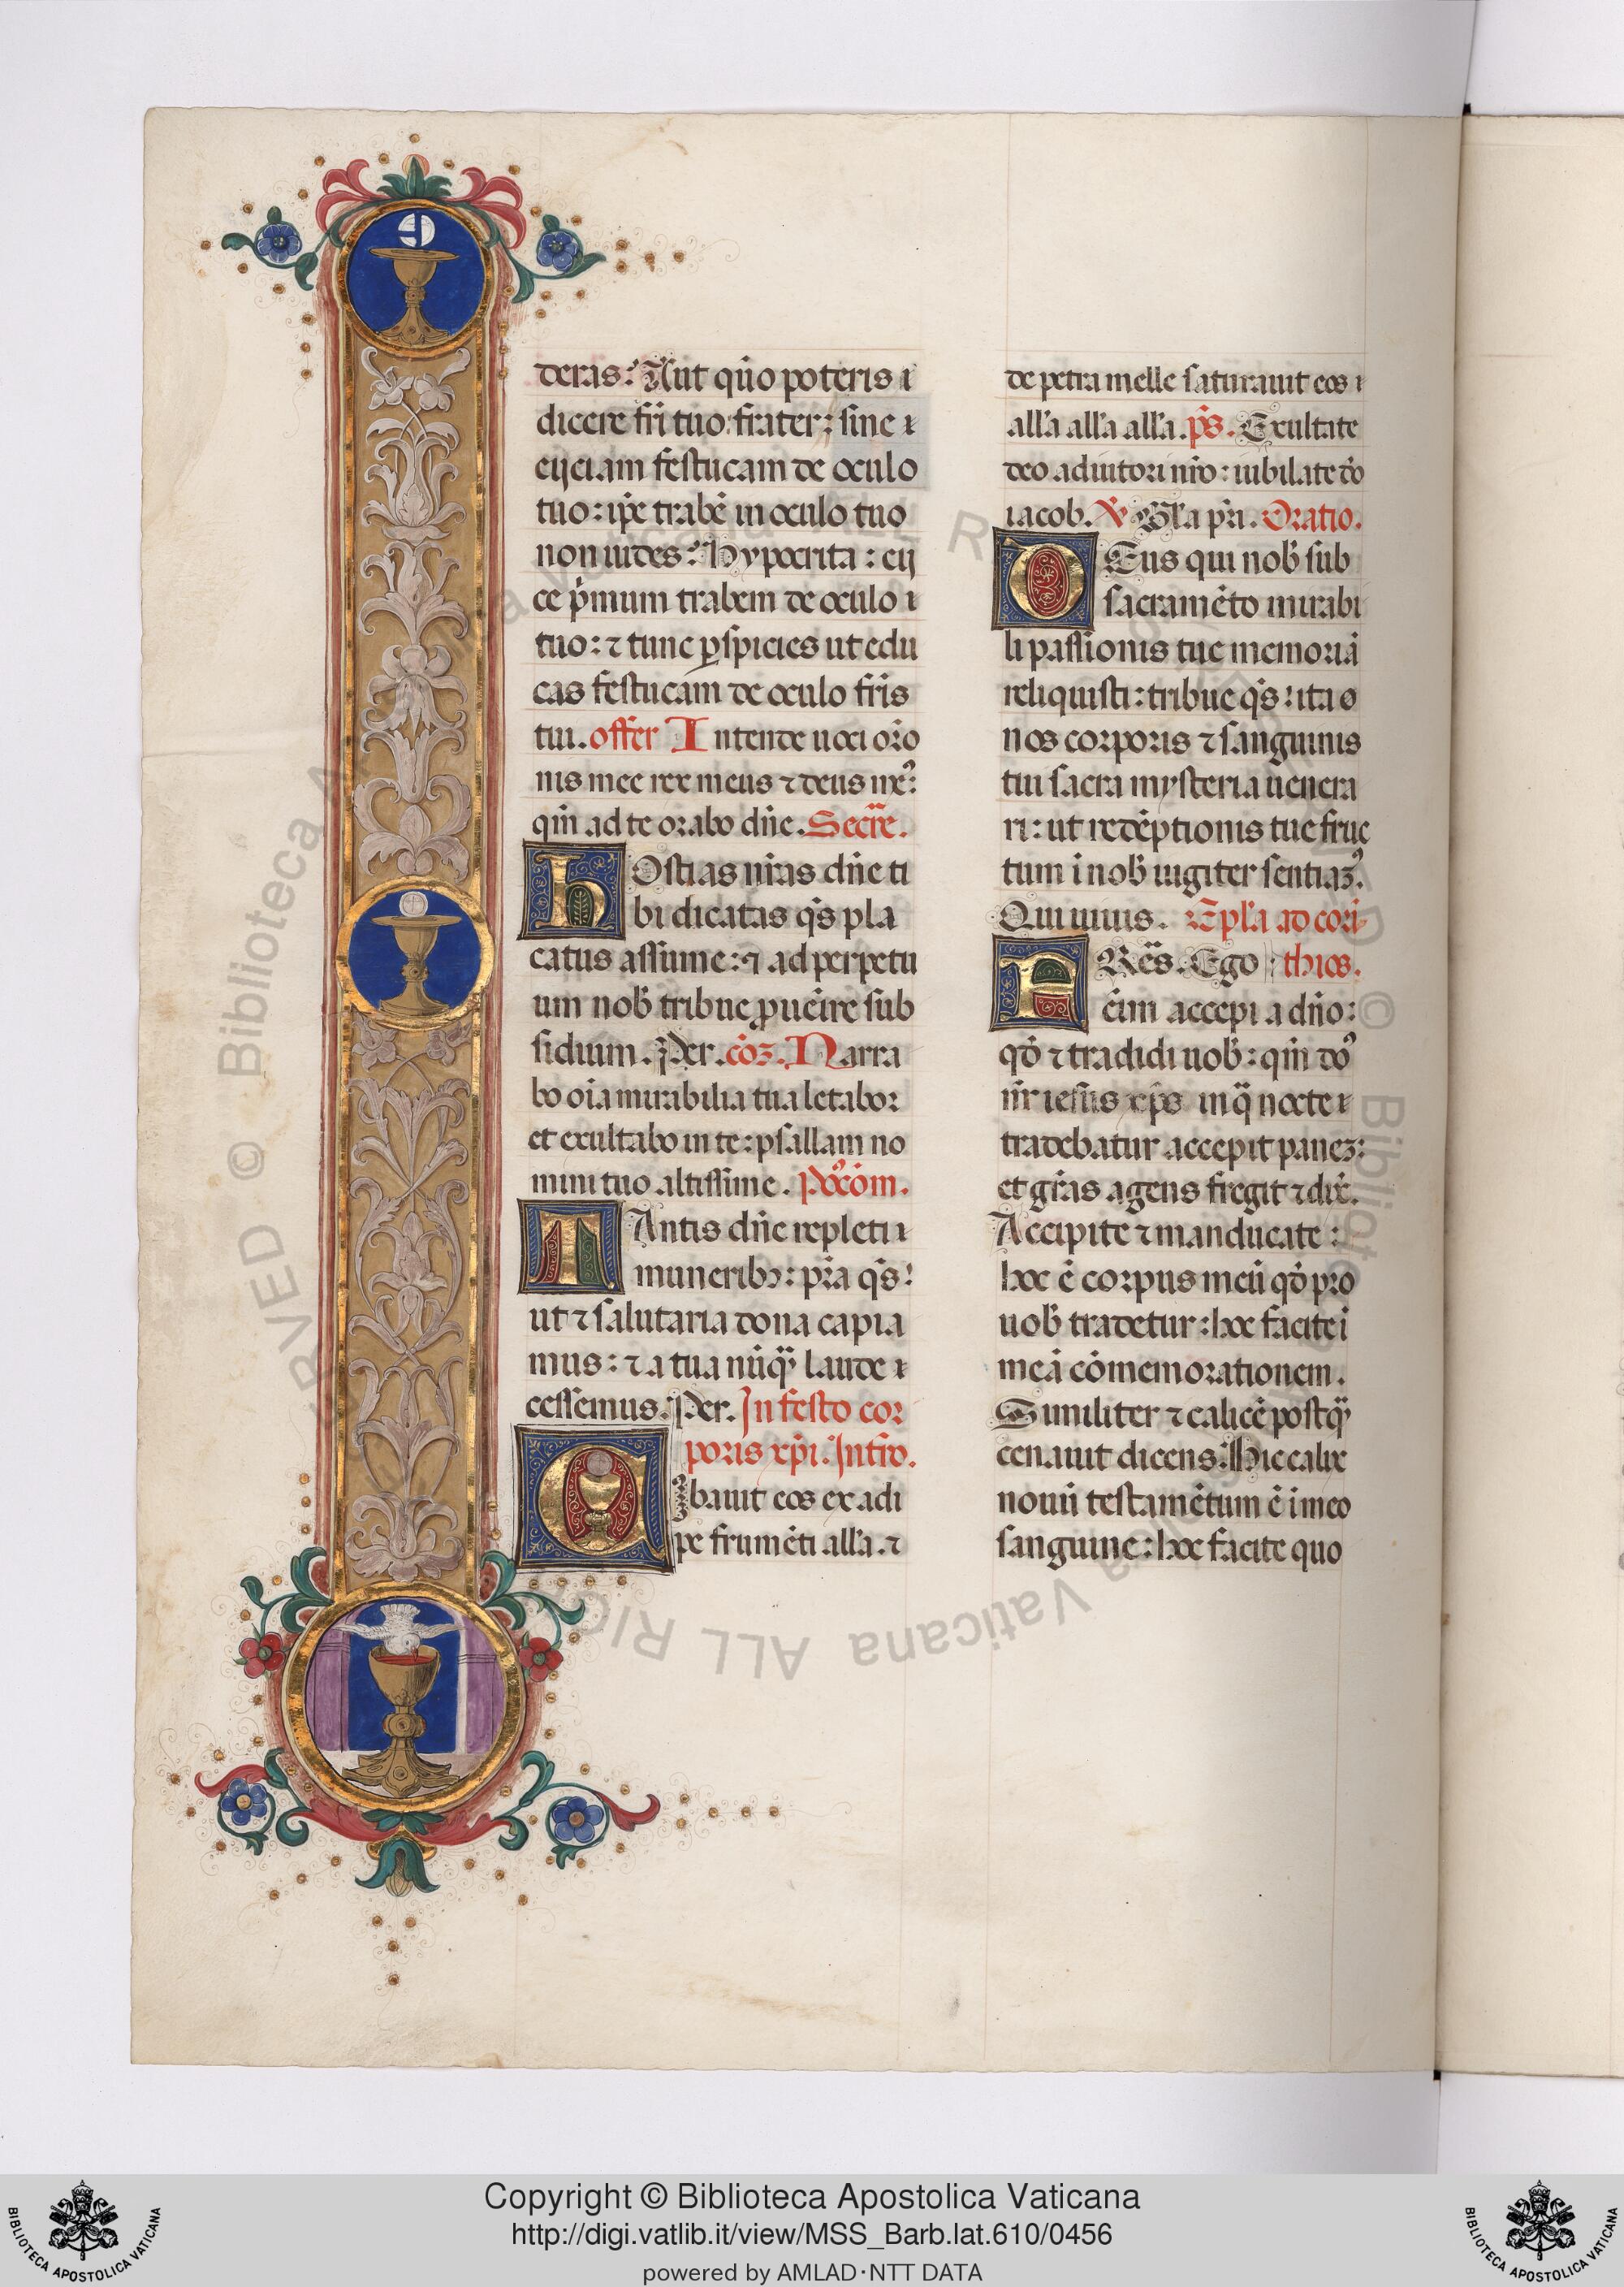 deras: Aut quo poteris i
dicere fri tuo: frater: sine i
eijciam festucam de oculo
tuo: ipe trabē in oculo tuo
non uides: Hypocrita: eij
ce pmum trabem de oculo i
tuo: ⁊ tunc pspicies ut edu
cas festucam de oculo fris
tui. offer Intende uoci oro
nis mee rex meus ⁊ deus mꝰ:
qm ad te orabo dñe. Secre.
HOstias nras dñe ti
bi dicatas qs pla
catus assume: ⁊ ad perpetu
um nob tribue puēire sub
sidium. Per. cōꝫ. Narra
bo oia mirabilia tua letabor
et exultabo in te: psallam no
mini tuo altissime. Poxcōm.
TAntis dñe repleti i
muneribꝰ: pra qs:
ut ⁊ salutaria dona capia
mus: ⁊ a tua nūq laude i
cessemus. Per. In festo cor
poris xpi. Intro.
CIbauit eos ex adi
pe frumēti alla. ⁊
de petra melle saturauit eos i
alla alla alla. ps. Exultate
deo adiutori nro: iubilate do
iacob. V Gla pri. Oratio.
DEus qui nob sub
sacramēto mirabi
li passionis tue memoriā
reliquisti: tribue qs: ita o
nos corporis ⁊ sanguinis
tui sacra mysteria uenera
ri: ut redēptionis tue fruc
tum i nob iugiter sentiaꝫ.
Qui uiuis. Epla ad cori
FRēs. Ego thios.
ēim accepi a dño:
qd ⁊ tradidi uob: qm doꝰ
nr iesus xps in q nocte i
tradebatur accepit paneꝫ:
et gras agens fregit ⁊ dix.
Accipite ⁊ manducate:
hoc ē corpus meū qd pro
uob tradetur: hoc facite i
meā cōmemorationem.
Similiter ⁊ calicē postq
cenauit dicens: Hic calix
nouū testamētum ē i meo
sanguine: hoc facite quo
Copyright © Biblioteca Apostolica Vaticana
http://digi.vatlib.it/view/MSS_Barb.lat.610/0456
powered by AMLAD·NTT DATA
BIBLIOTECA APOSTOLICA VATICANA
BIBLIOTECA APOSTOLICA VATICANA